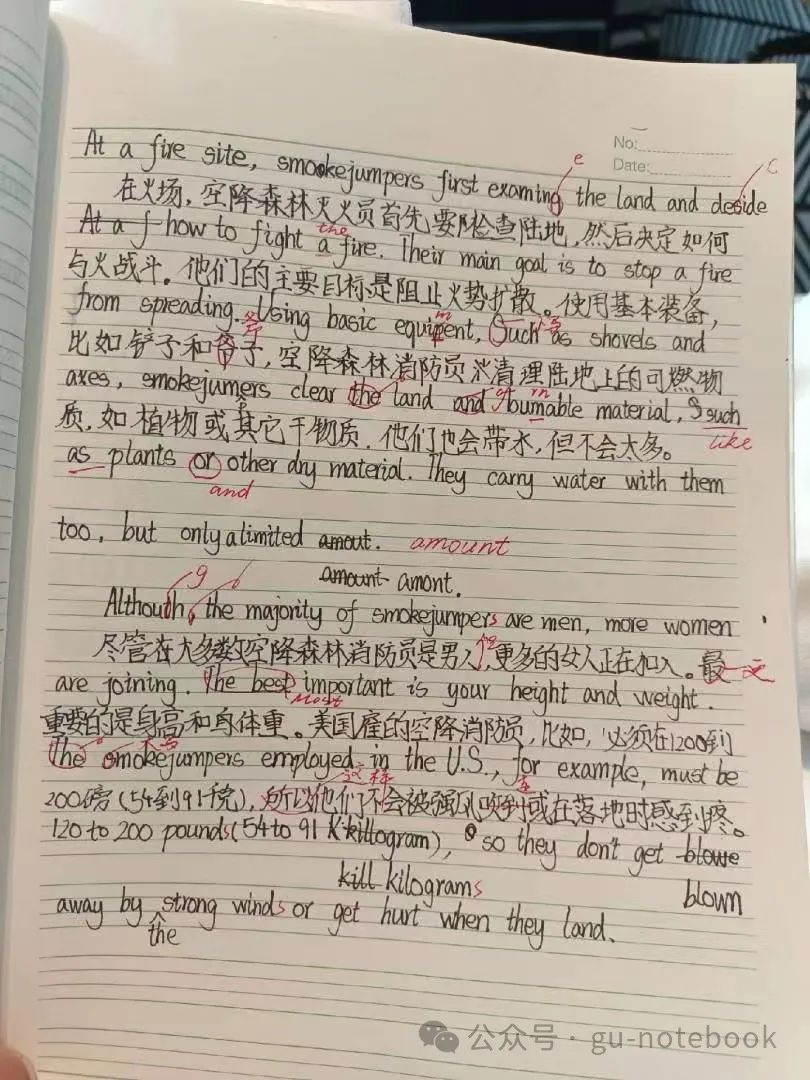 No:
Date:
At a fire site, smokejumpers first examing the land and deside
e
c
在火场，空降森林灭火员首先要检查陆地，然后决定如何
At a f how to fight a fire. Their main goal is to stop a fire
the
与火战斗。他们的主要目标是阻止火势扩散。使用基本装备，
from spreading. Using basic equipent, Such as shovels and
m
比如铲子和斧子，空降森林消防员清理陆地上的可燃物
axes, smokejumers clear the land and bumable material, such
of
p
质，如植物或其它干物质．他们也会带水，但不会太多。
like
as plants or other dry material. They carry water with them
and
too, but only a limitted amout. amount
amount amont.
g
Althouth, the majority of smokejumpers are men, more women
尽管大多数空降森林消防员是男人，更多的女人正在加入。最
are joining. The best important is your height and weight.
most
重要的是身高和身体重。美国雇的空降消防员，比如，必须在1200到
The smokejumpers employed in the U.S., for example, must be
这样
200磅（54到91千克），所以他们不会被强风吹到或在落地时感到疼。
120 to 200 pounds (54 to 91 killogram), so they don't get blowe
kill kilograms
blown
away by strong winds or get hurt when they land.
the
公众号·gu-notebook